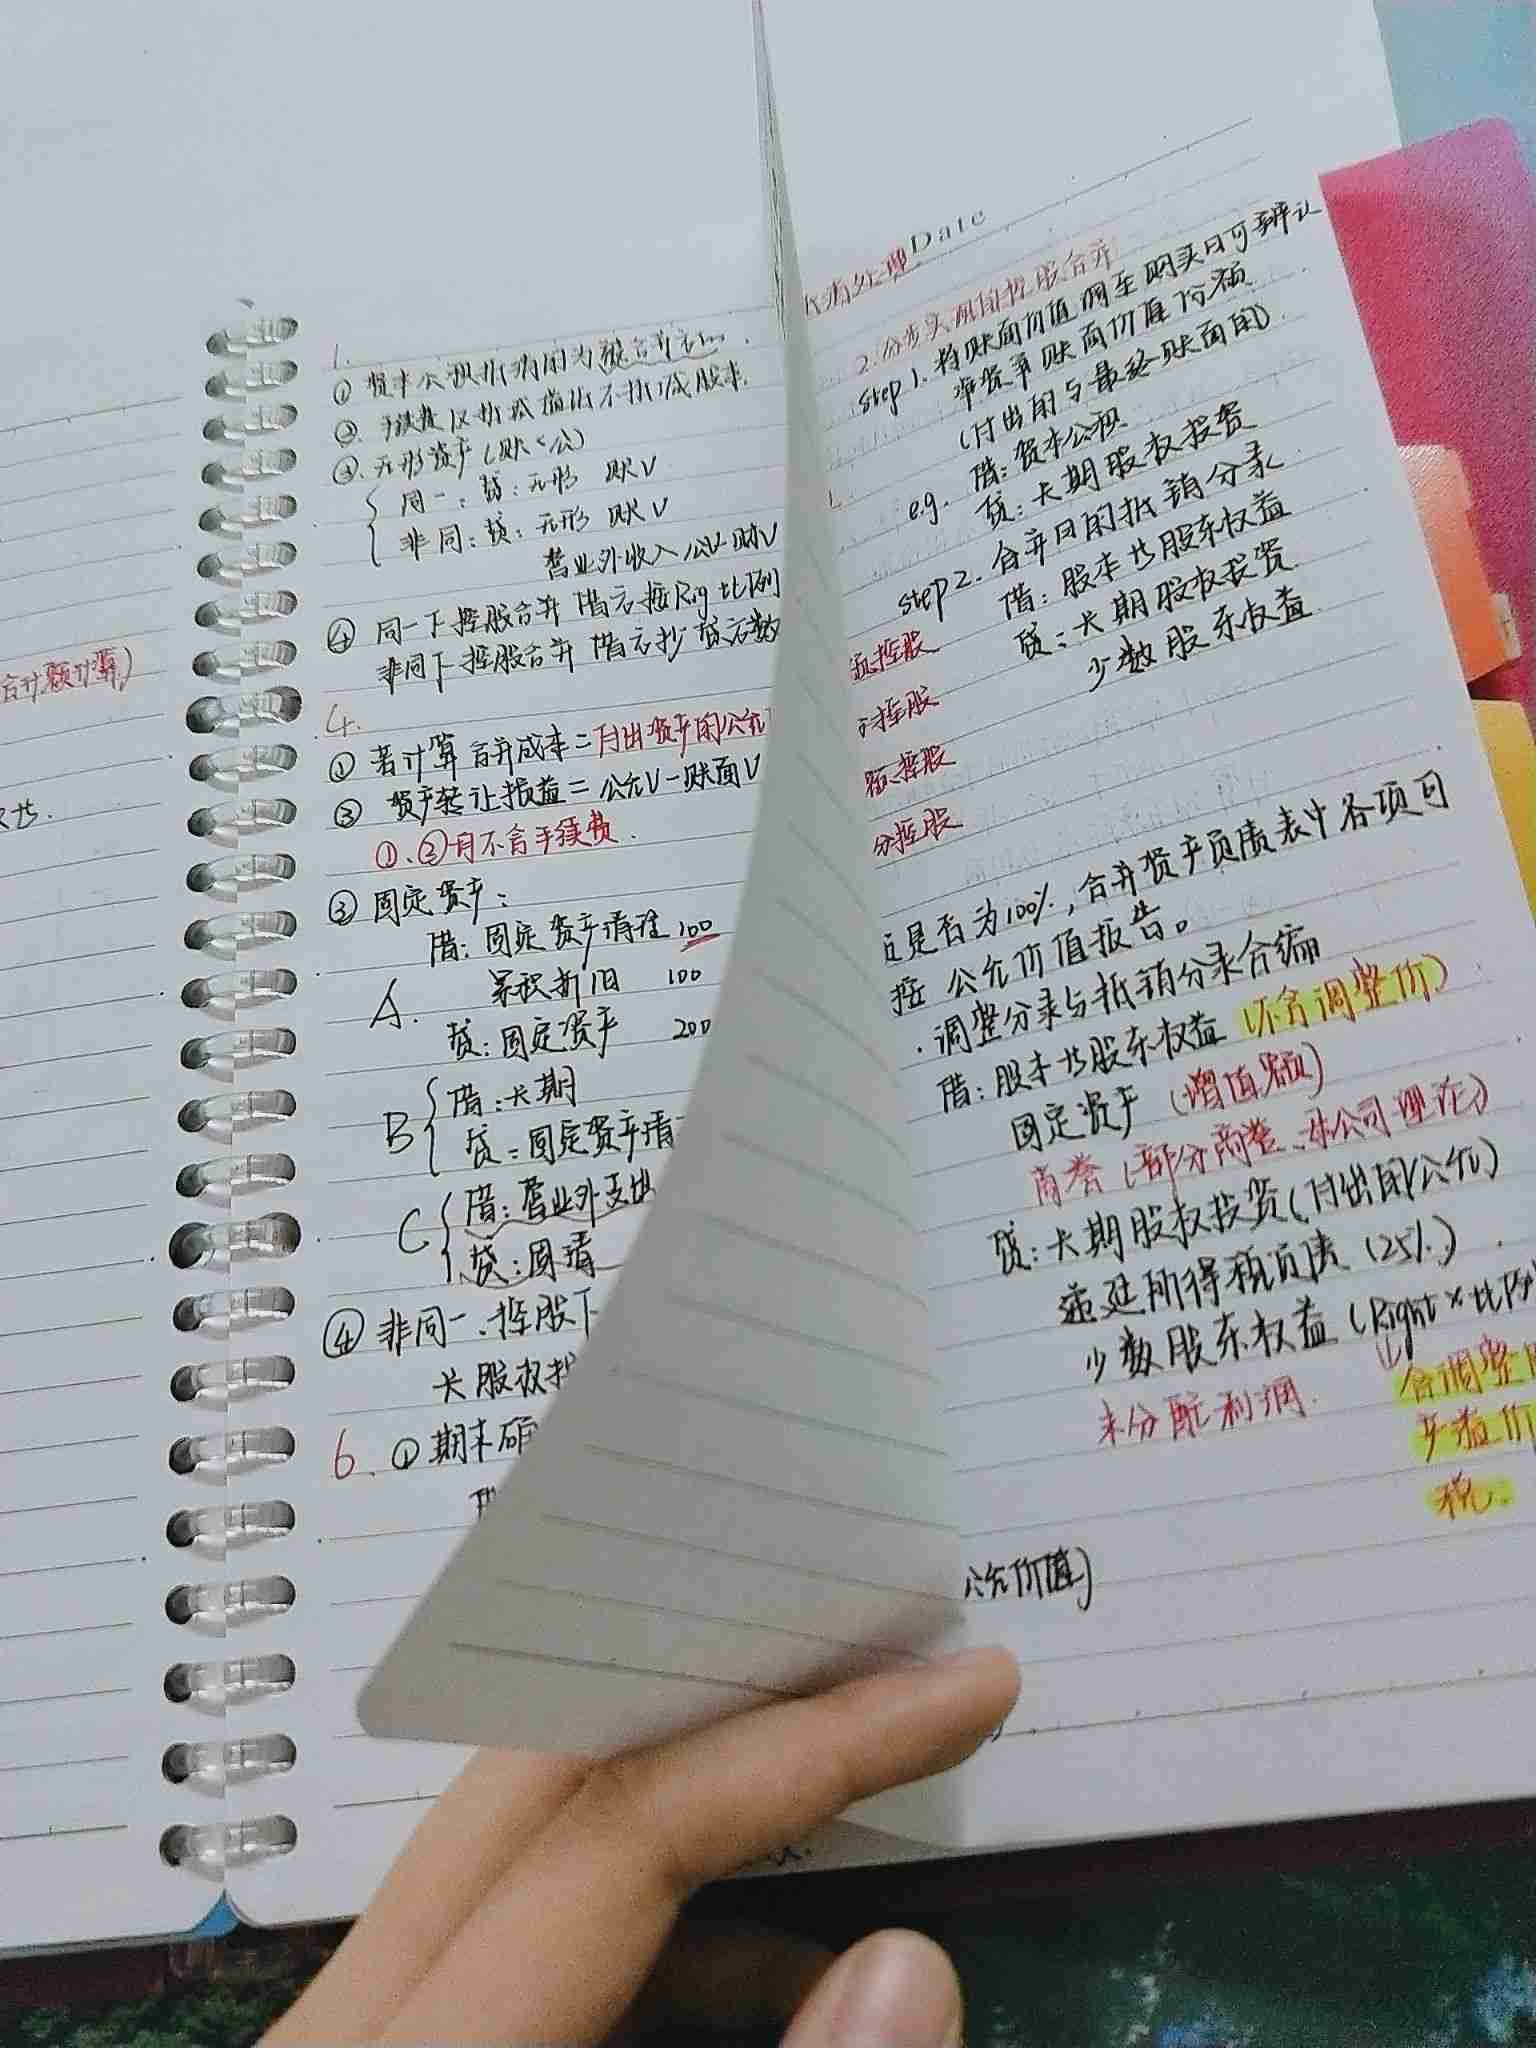 合并额计算)
1.
① 资本公积折
② 手续费仅折减 不折减股本
③ 无形资产(账<公)
同一:贷:无形 账V
非同:贷:无形 账V
营业外收入 公V-账V
④ 同一下控股合并 借方按Rig比例
非同下控股合并 借方抄贷方数
4.
① 若计算合并成本=付出资产的公允
② 资产转让损益=公允V-账面V
①、②月不含手续费.
③ 固定资产:
借:固定资产清理 100
A. 累积折旧 100
贷:固定资产 200
B 借:长期
贷:固定资产清
C 借:营业外支出
贷:固清
④ 非同一、控股下
长股权
6. ① 期末
消处理 Date
2.分步实现的控股合并
step 1. 将账面价值调至购买日可辨认
净资产账面价值份额
(付出的与最终账面的)
e.g. 借:资本公积
贷:长期股权投资
step 2. 合并日的抵销分录
借:股本与股东权益
贷:长期股权投资
少数股东权益
控股
控股
控股
分控股
是否为100%,合并资产负债表中各项目
按公允价值报告。
.调整分录与抵销分录合编
借:股本与股东权益(不含调整价)
固定资产(增值额)
商誉(部分商誉、母公司理论)
贷:长期股权投资(付出的公允)
递延所得税负债(25%).
少数股东权益(Right×比例
未分配利润. 含调整
价
税.
公允价值)